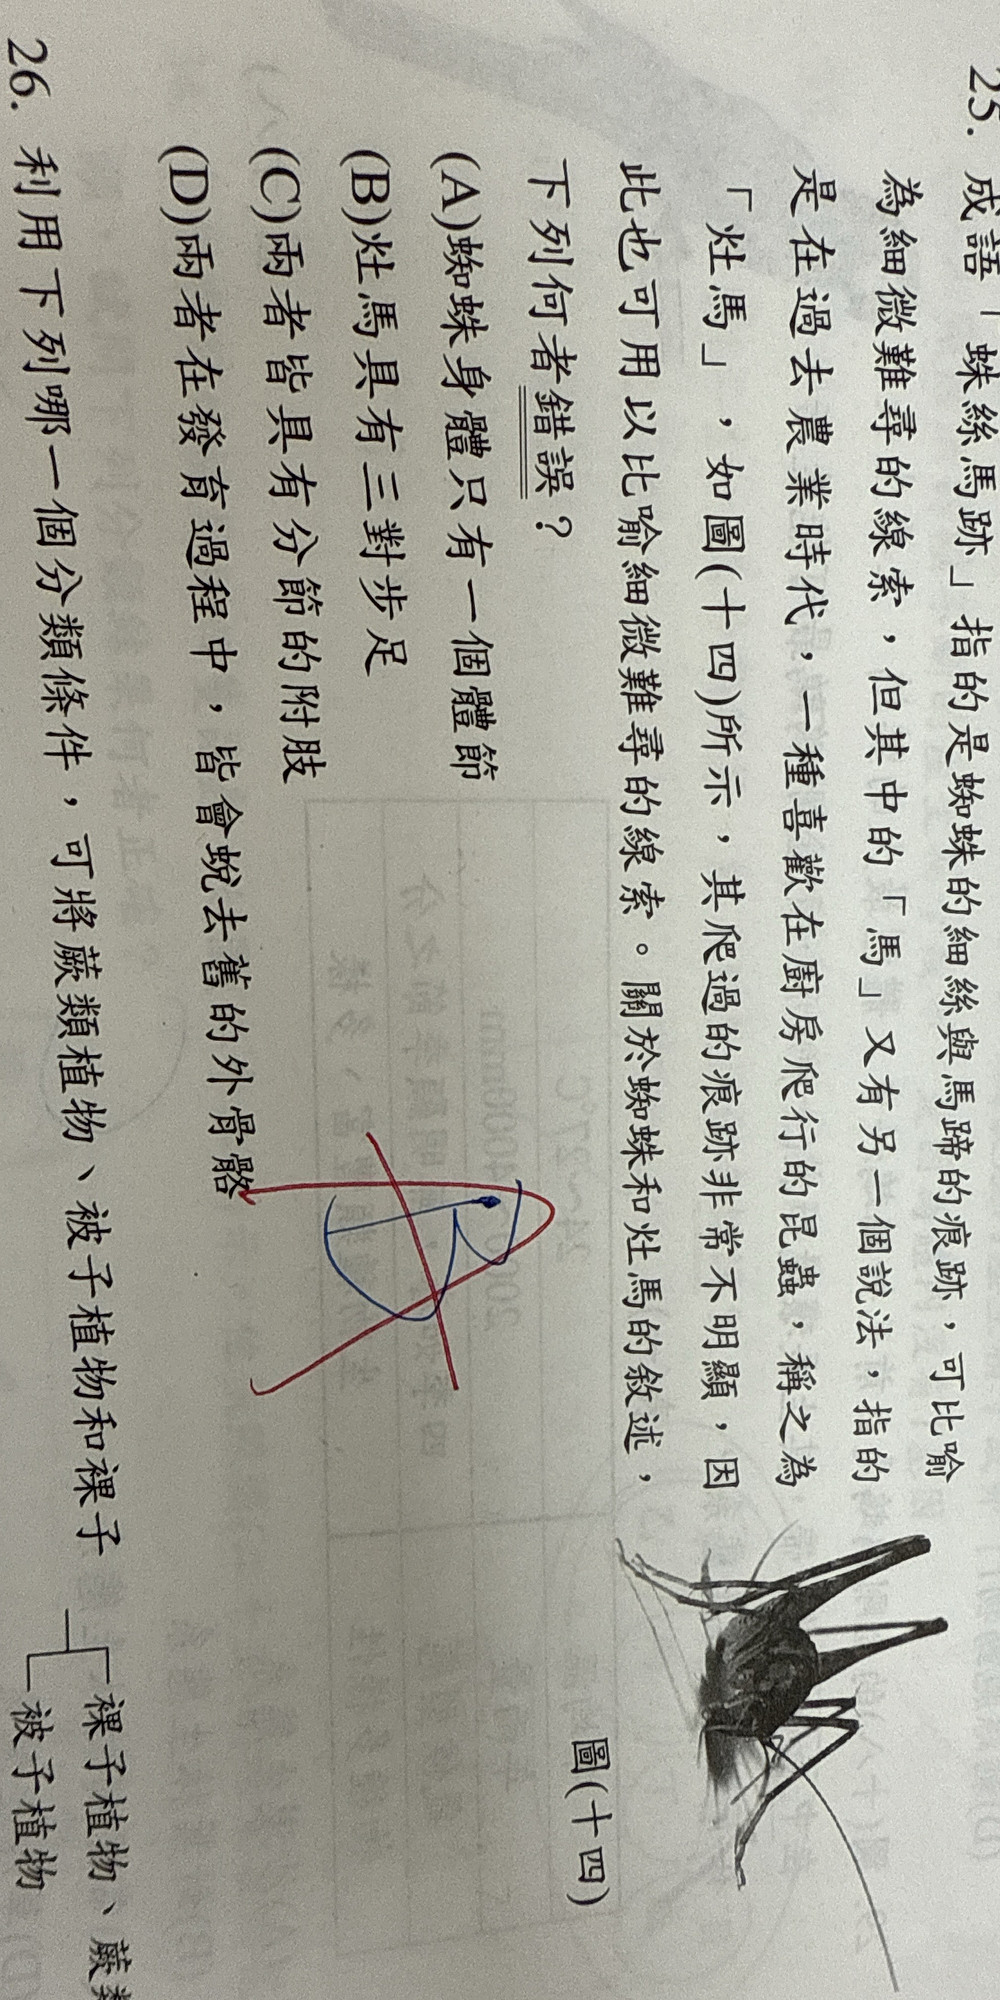 25. 成語「蛛絲馬跡」指的是蜘蛛的細絲與馬蹄的痕跡，可比喻
為細微難尋的線索，但其中的「馬」又有另一個說法，指的
是在過去農業時代，一種喜歡在廚房爬行的昆蟲，稱之為
「灶馬」，如圖(十四)所示，其爬過的痕跡非常不明顯，因
此也可用以比喻細微難尋的線索。關於蜘蛛和灶馬的敘述，
下列何者錯誤？
(A)蜘蛛身體只有一個體節
(B)灶馬具有三對步足
(C)兩者皆具有分節的附肢
(D)兩者在發育過程中，皆會蛻去舊的外骨骼
圖(十四)
26. 利用下列哪一個分類條件，可將蕨類植物、被子植物和裸子
裸子植物、蕨類
被子植物